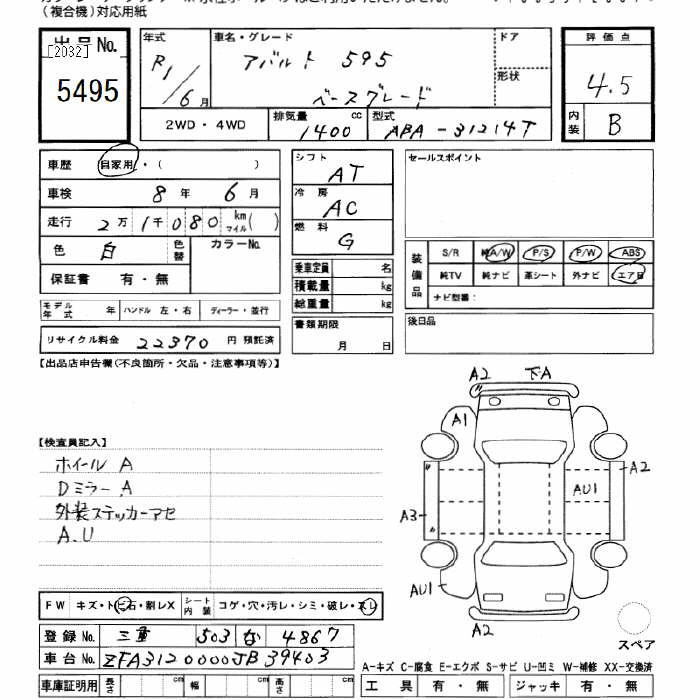 （複合機）対応用紙
出品No.
[2032]
5495
年式
R1/6月
車名・グレード
アバルト 595
ベースグレード
ドア
形状
2WD・4WD
排気量 1400 cc
型式 ABA-31214T
評価点
4.5
内装 B
車歴 自家用・（ ）
車検 8年 6月
走行 2万1千080 km マイル( )
色 白 色替 カラーNo.
保証書 有・無
モデル年式 年 ハンドル 左・右 ディーラー・並行
リサイクル料金 22370 円 預託済
シフト AT
冷房 AC
燃料 G
乗車定員 名
積載量 kg
総重量 kg
書類期限
月 日
セールスポイント
装備品
S/R 純A/W P/S P/W ABS
純TV 純ナビ 革シート 外ナビ エアB
ナビ型番：
後日品
【出品店申告欄(不良箇所・欠品・注意事項等)】
【検査員記入】
ホイール A
Dミラー A
外装ステッカーアセ
A.U
A2 下A
A1
A2
AU1
A3
AU1
A2
スペア
FW キズ・トビ石・割レX シート内装 コゲ・穴・汚レ・シミ・破レ・スレ
登録No. 三重 503 な 4867
車台No. ZFA3120000JB39403
A-キズ C-腐食 E-エクボ S-サビ U-凹ミ W-補修 XX-交換済
車庫証明用 長さ cm 幅 cm 高さ cm
工具 有・無 ジャッキ 有・無